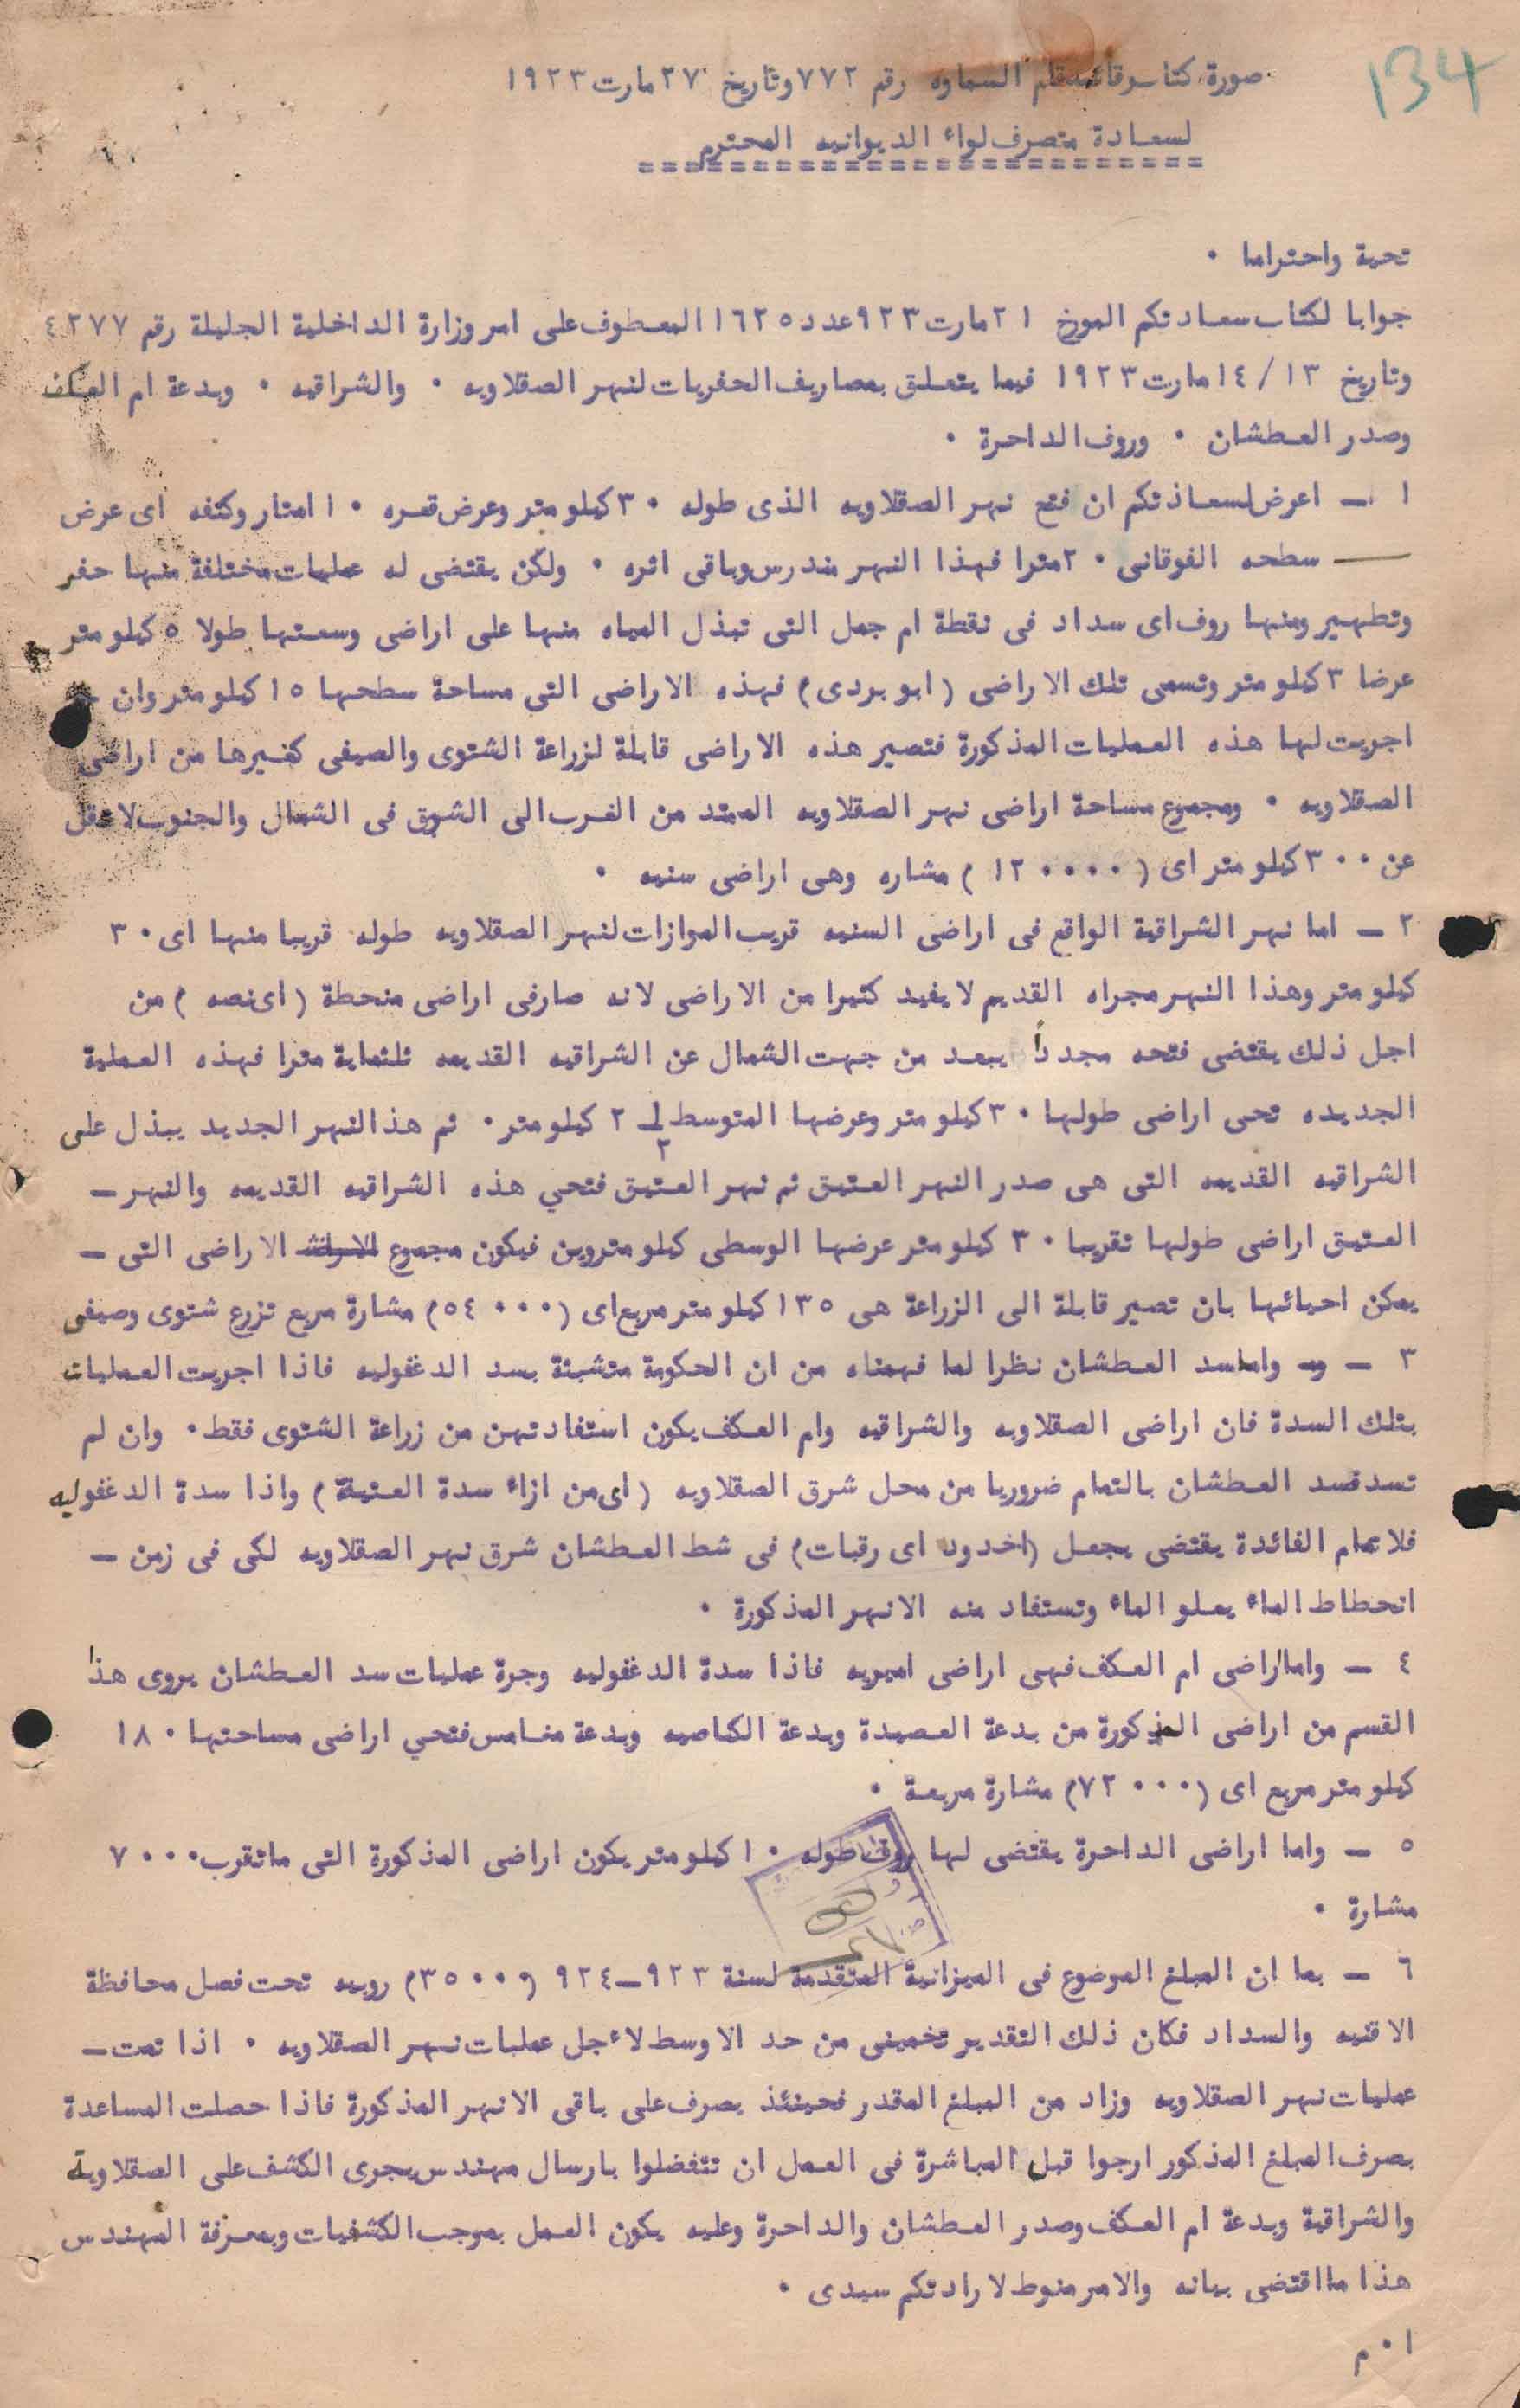 134
صورة كتاب وقائمقام السماوه رقم ٧٧٢ وتاريخ ٢٧ مارت ١٩٢٣
لسعادة متصرف لواء الديوانيه المحترم
========================
تحية واحتراما ٠
جوابا لكتاب سعادتكم المورخ ٢١ مارت ٩٢٣ عدد ١٦٢٥ المعطوف على امر وزارة الداخلية الجليلة رقم ٤٢٧٧
وتاريخ ١٣ / ١٤ مارت ١٩٢٣ فيما يتعلق بمصاريف الحفريات لنهر الصقلاويه ٠ والشراقيه ٠ وبدعة ام العكف
وصدر العطشان ٠ وروف الداحرة ٠
١ — اعرض لسعاذتكم ان فتح نهر الصقلاويه الذى طوله ٣٠ كيلو متر وعرض قعره ١٠ امتار وكتفه اى عرض
— سطحه الفوقانى ٢٠ مترا فهذا النهر مندرس وباقى اثره ٠ ولكن يقتضى له عمليات مختلفة منها حفر
وتطهير ومنها روف اى سداد فى نقطة ام جمل التى تبذل المياه منها على اراضى وسعتها طولا ٥ كيلو متر
عرضا ٣ كيلو متر وتسمى تلك الاراضى (ابو بردى) فهذه الاراضى التى مساحة سطحها ١٥ كيلو متر وان
اجريت لها هذه العمليات المذكورة فتصير هذه الاراضى قابلة لزراعة الشتوى والصيفى كغيرها من اراضى
الصقلاويه ٠ ومجموع مساحة اراضى نهر الصقلاويه الممتد من الغرب الى الشرق فى الشمال والجنوب لا تقل
عن ٣٠٠ كيلو متر اى (١٢٠٠٠٠) مشاره وهى اراضى سنيه ٠
٢ — اما نهر الشراقية الواقع فى اراضى السنيه قريب الموازات لنهر الصقلاويه طوله قريبا منها اى ٣٠
كيلو متر وهذا النهر مجراه القديم لا يفيد كثيرا من الاراضى لانه صار فى اراضى منحطة (اى نصه) من
اجل ذلك يقتضى فتحه مجدداً يبعد من جهت الشمال عن الشراقيه القديمه ثلثماية مترا فهذه العملية
الجديده تحى اراضى طولها ٣٠ كيلو متر وعرضها المتوسط ١/٢ ٢ كيلو متر ٠ ثم هذا النهر الجديد يبذل على
الشراقيه القديمه التى هى صدر النهر العتيق ثم نهر العتيق فتحي هذه الشراقيه القديمه والنهر —
العتيق اراضى طولها تقريبا ٣٠ كيلو متر عرضها الوسطى كيلو متروين فيكون مجموع الاراضى التى —
يمكن احيائها بان تصير قابلة الى الزراعة هى ١٣٥ كيلو متر مربع اى (٥٤٠٠٠) مشارة مربع تزرع شتوى وصيفى
٣ — واما سد العطشان نظرا لما فهمناه من ان الحكومة متشبثة بسد الدغفوليه فاذا اجريت العمليات
بتلك السدة فان اراضى الصقلاويه والشراقيه وام العكف يكون استفادتهن من زراعة الشتوى فقط ٠ وان لم
تسد فسد العطشان بالتمام ضروريا من محل شرق الصقلاويه (اى من ازاء سدة العتيقة) واذا سدة الدغفوليه
فلا تمام الفائدة يقتضى يجعل (اخدود اى رقبات) فى شط العطشان شرق نهر الصقلاويه لكى فى زمن —
انحطاط الماء يعلو الماء وتستفاد منه الانهر المذكورة ٠
٤ — واما اراضى ام العكف فهى اراضى اميريه فاذا سدة الدغفوليه وجرة عمليات سد العطشان يروى هذا
القسم من اراضى المذكورة من بدعة العصيدة وبدعة الكماصيه وبدعة مغامس فتحي اراضى مساحتها ١٨٠
كيلو متر مربع اى (٧٢٠٠٠) مشارة مربعة ٠
٥ — واما اراضى الداحرة يقتضى لها روف طوله ١٠ كيلو متر يكون اراضى المذكورة التى ما تقرب ٧٠٠٠
مشارة ٠
٦ — بما ان المبلغ الموضوع فى الميزانية المتقدمة لسنة ٩٢٣—٩٢٤ (٣٥٠٠٠) روبيه تحت فصل محافظة
الاقنيه والسداد فكان ذلك التقدير تخمينى من حد الاوسط لاءجل عمليات نهر الصقلاويه ٠ اذا تمت —
عمليات نهر الصقلاويه وزاد من المبلغ المقدر فحينئذ يصرف على باقى الانهر المذكورة فاذا حصلت المساعدة
بصرف المبلغ المذكور ارجوا قبل المباشرة فى العمل ان تتفضلوا بارسال مهندس يجرى الكشف على الصقلاوية
والشراقية وبدعة ام العكف وصدر العطشان والداحرة وعليه يكون العمل بموجب الكشفيات وبمعرفة المهندس
هذا ما اقتضى بيانه والامر منوط لارادتكم سيدى ٠
ا ٠ م